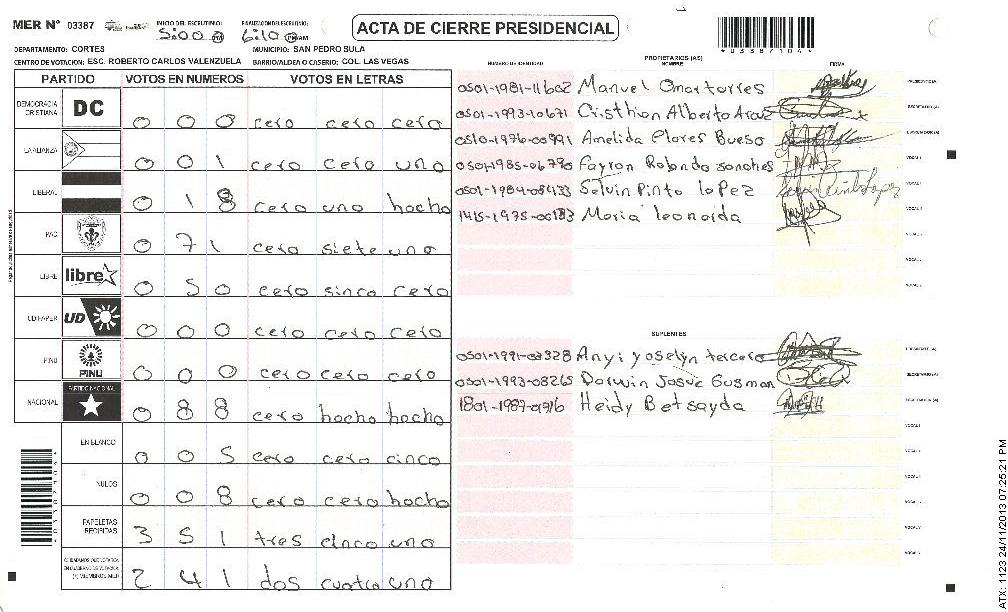 MER N° 03387
INICIO DEL ESCRUTINIO: 5:00 PM
FINALIZACION DEL ESCRUTINIO: 6:10 PM
ACTA DE CIERRE PRESIDENCIAL
DEPARTAMENTO: CORTES MUNICIPIO: SAN PEDRO SULA
CENTRO DE VOTACION: ESC. ROBERTO CARLOS VALENZUELA BARRIO/ALDEA O CASERIO: COL. LAS VEGAS
PARTIDO VOTOS EN NUMEROS VOTOS EN LETRAS
DEMOCRACIA CRISTIANA DC 0 0 0 cero cero cero
LA ALIANZA 0 0 1 cero cero uno
LIBERAL 0 1 8 cero uno hocho
PAC 0 7 1 cero siete uno
LIBRE libre 0 5 0 cero sinco cero
UD/FAPER UD 0 0 0 cero cero cero
PINU PINU 0 0 0 cero cero cero
NACIONAL PARTIDO NACIONAL 0 8 8 cero hocho hocho
EN BLANCO 0 0 5 cero cero cinco
NULOS 0 0 8 cero cero hocho
PAPELETAS RECIBIDAS 3 5 1 tres cinco uno
2 4 1 dos cuatro uno
NUMERO DE IDENTIDAD PROPIETARIOS (AS) NOMBRE FIRMA
0501-1981-11602 Manuel Omar torres PRESIDENTE(A)
0501-1993-10671 Cristhion Alberto SECRETARIO(A)
0510-1976-00991 Amelida Flores Bueso ESCRUTADOR(A)
0501-1985-06790 Fayron Rolando sanches VOCAL
0501-1984-08433 Selvin Pinto lopez VOCAL
1415-1975-00183 Maria leonarda VOCAL
VOCAL
VOCAL
VOCAL
SUPLENTES
0501-1991-03328 Anyi yoselyn tercero PRESIDENTE (A)
0501-1993-08265 Darwin Josue Gusman SECRETARIO(A)
1801-1987-0916 Heidy Betsayda
VOCAL
VOCAL
VOCAL
VOCAL
VOCAL
VOCAL
*03387104*
ATX: 1123 24/11/2013 07:25:21 PM